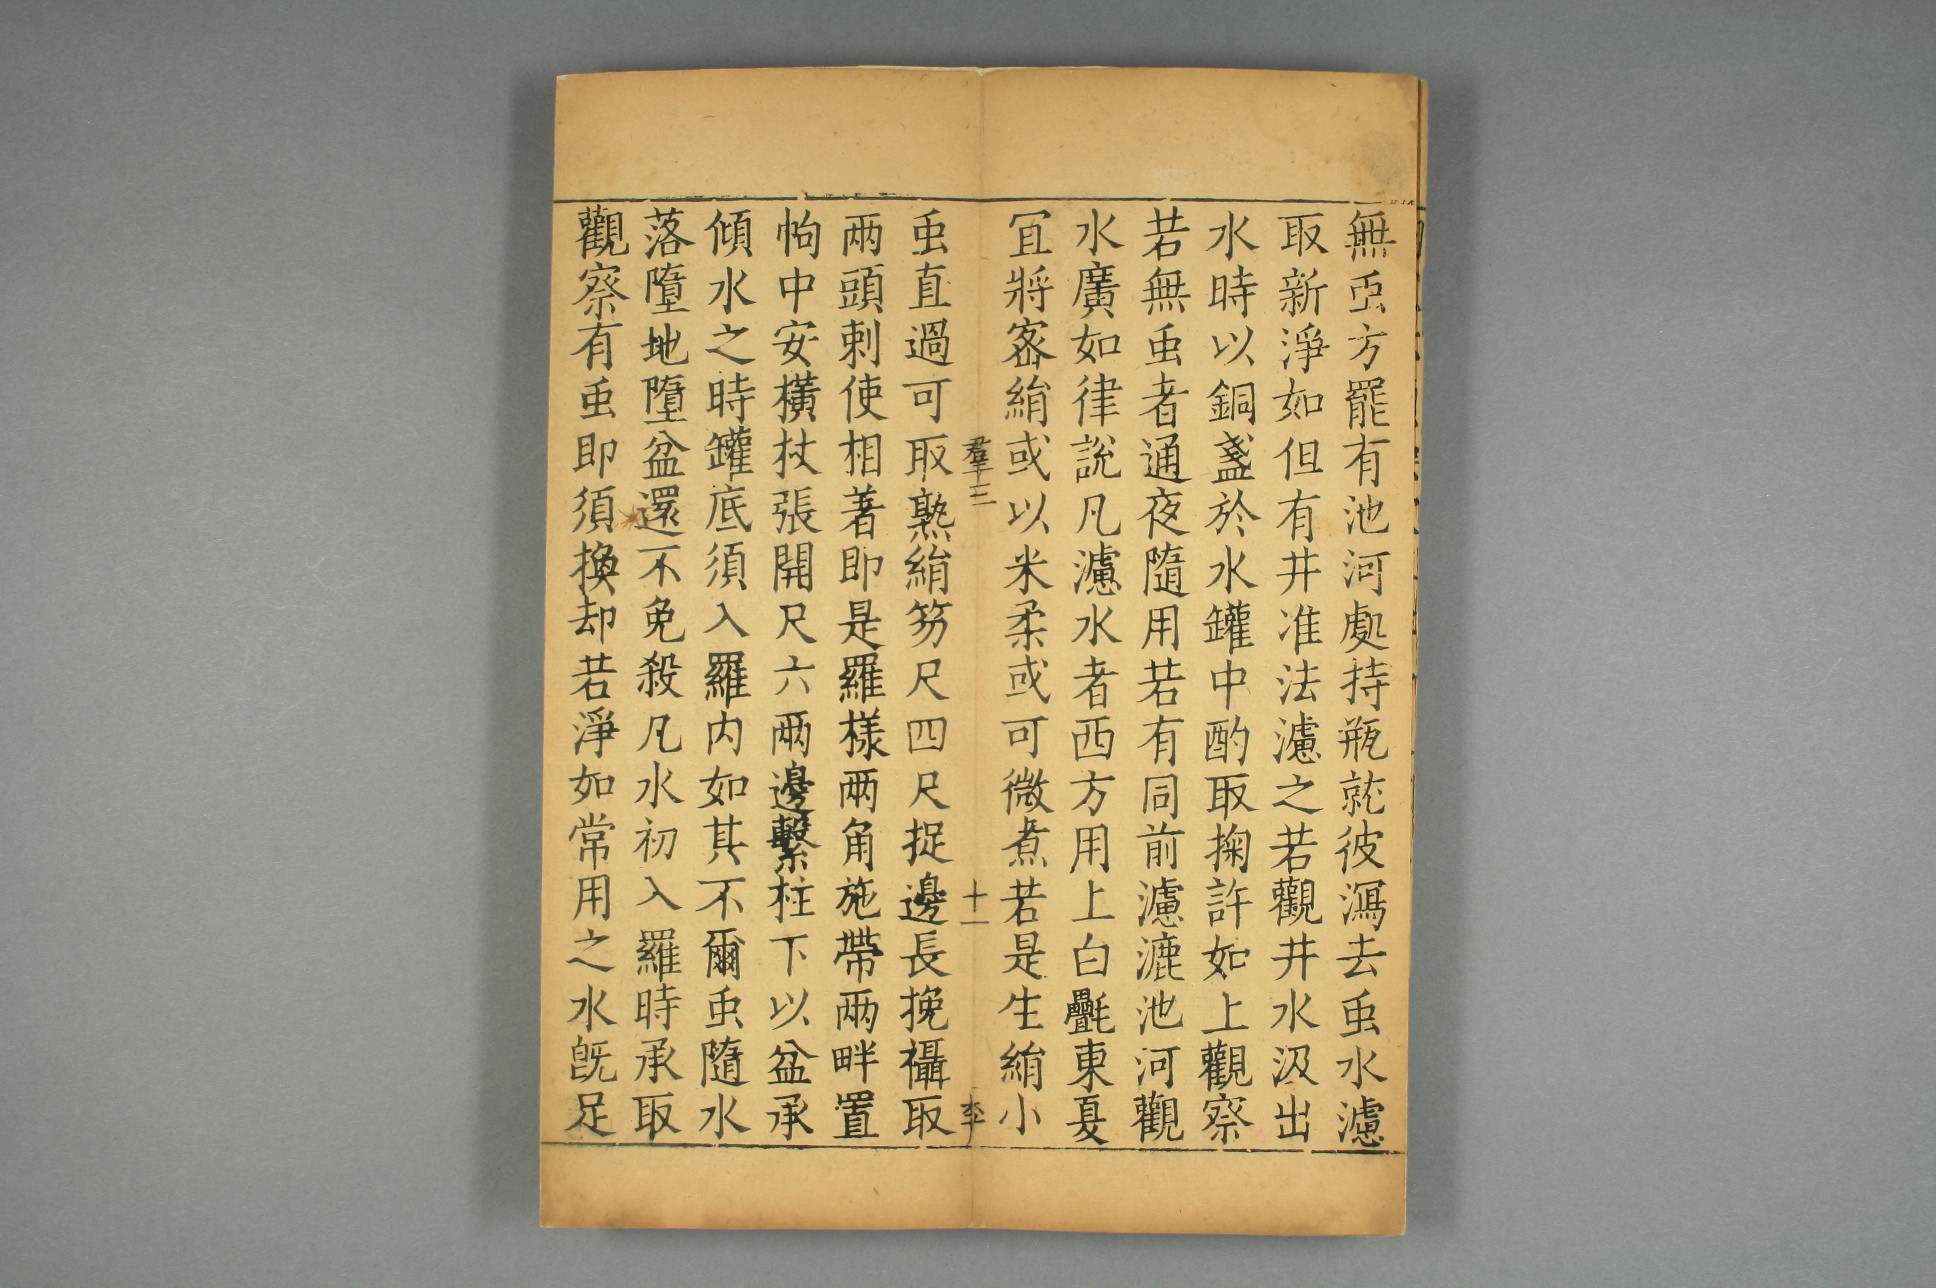 無䖝方罷有池河處持瓶就彼瀉去䖝水濾
取新淨如但有井准法濾之若觀井水汲出
水時以銅盞於水罐中酌取掬許如上觀察
若無䖝者通夜隨用若有同前濾漉池河觀
水廣如律說凡濾水者西方用上白㲲東夏
冝將宻絹或以米柔或可微煮若是生絹小
羣三
十一
䖝直過可取熟絹笏尺四尺捉邊長挽襵取
兩頭刺使相著即是羅樣兩角施帶兩畔置
㡇中安橫杖張開尺六兩邊繫柱下以盆承
傾水之時罐底須入羅内如其不爾䖝隨水
落墮地墮盆還不免殺凡水初入羅時承取
觀察有䖝即須換却若淨如常用之水旣足